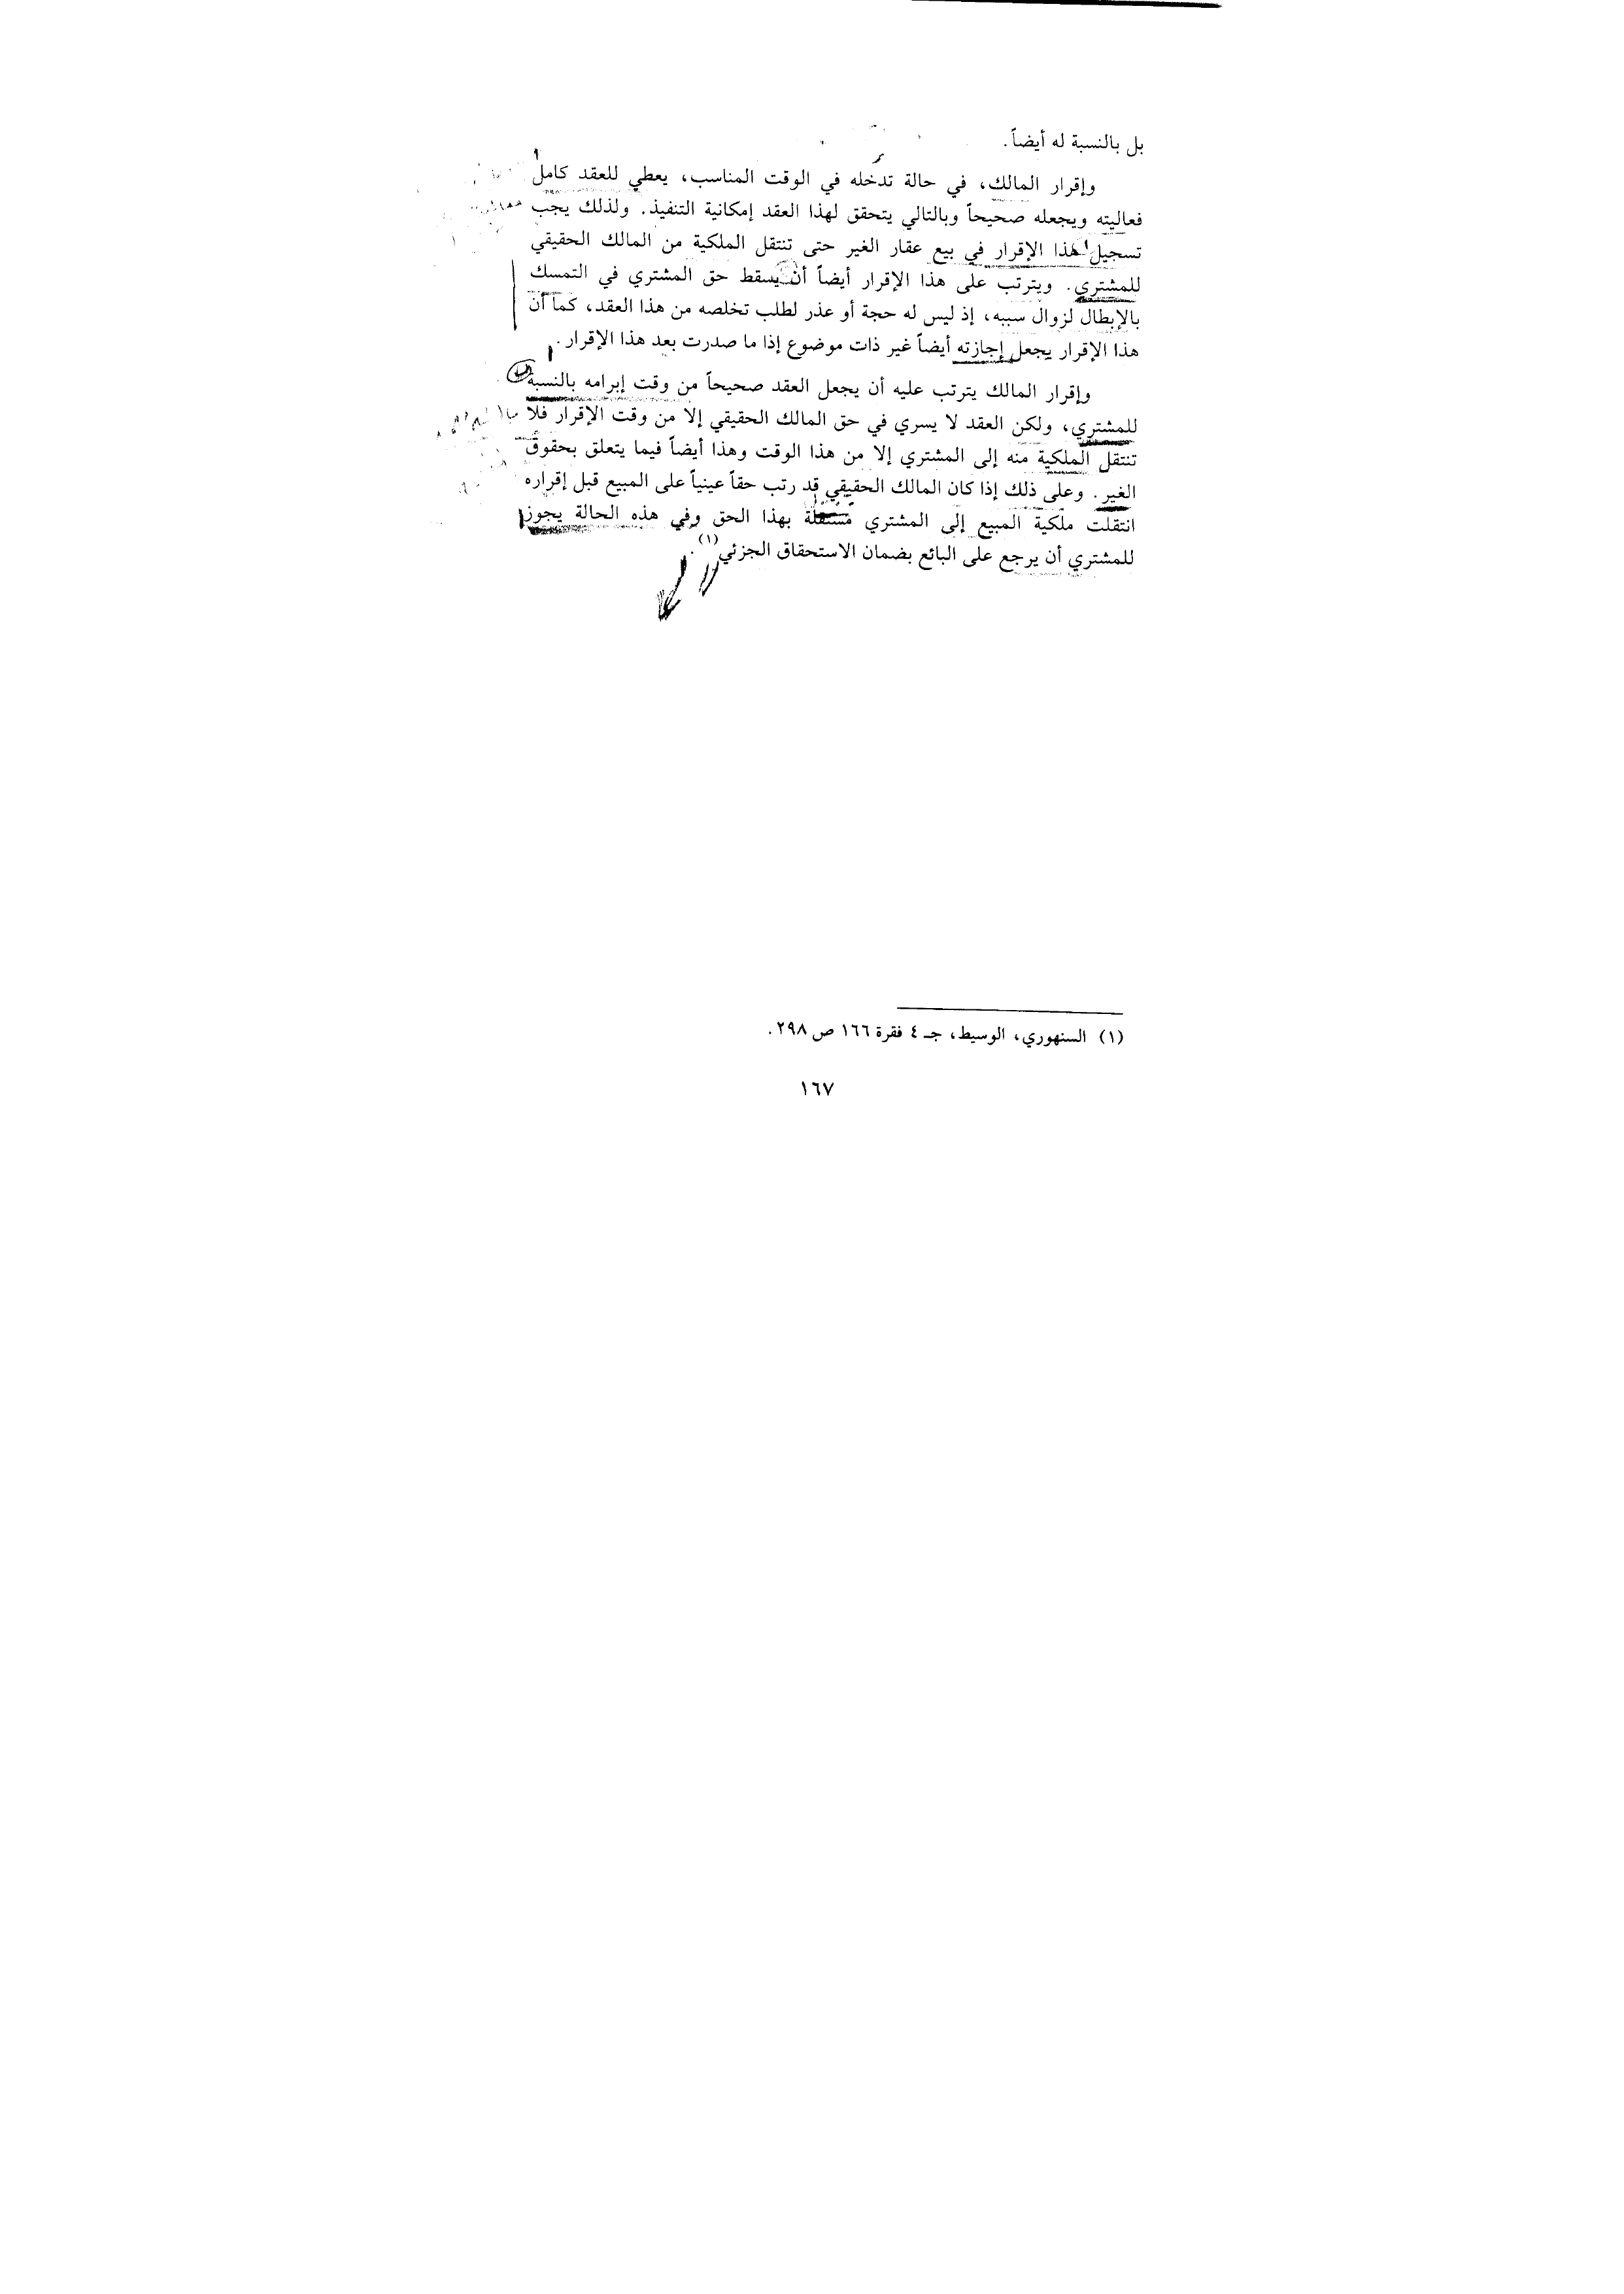 بل بالنسبة له أيضاً.
وإقرار المالك، في حالة تدخله في الوقت المناسب، يعطي للعقد كامل
فعاليته ويجعله صحيحاً وبالتالي يتحقق لهذا العقد إمكانية التنفيذ. ولذلك يجب
تسجيل هذا الإقرار في بيع عقار الغير حتى تنتقل الملكية من المالك الحقيقي
للمشتري. ويترتب على هذا الإقرار أيضاً أن يسقط حق المشتري في التمسك
بالإبطال لزوال سببه، إذ ليس له حجة أو عذر لطلب تخلصه من هذا العقد، كما أن
هذا الإقرار يجعل إجازته أيضاً غير ذات موضوع إذا ما صدرت بعد هذا الإقرار.
وإقرار المالك يترتب عليه أن يجعل العقد صحيحاً من وقت إبرامه بالنسبة
للمشتري، ولكن العقد لا يسري في حق المالك الحقيقي إلا من وقت الإقرار فلا
تنتقل الملكية منه إلى المشتري إلا من هذا الوقت وهذا أيضاً فيما يتعلق بحقوق
الغير. وعلى ذلك إذا كان المالك الحقيقي قد رتب حقاً عينياً على المبيع قبل إقراره
انتقلت ملكية المبيع إلى المشتري بهذا الحق وفي هذه الحالة يجوز
للمشتري أن يرجع على البائع بضمان الاستحقاق الجزئي(١).
(١) السنهوري، الوسيط، جـ ٤ فقرة ١٦٦ ص ٢٩٨.
١٦٧